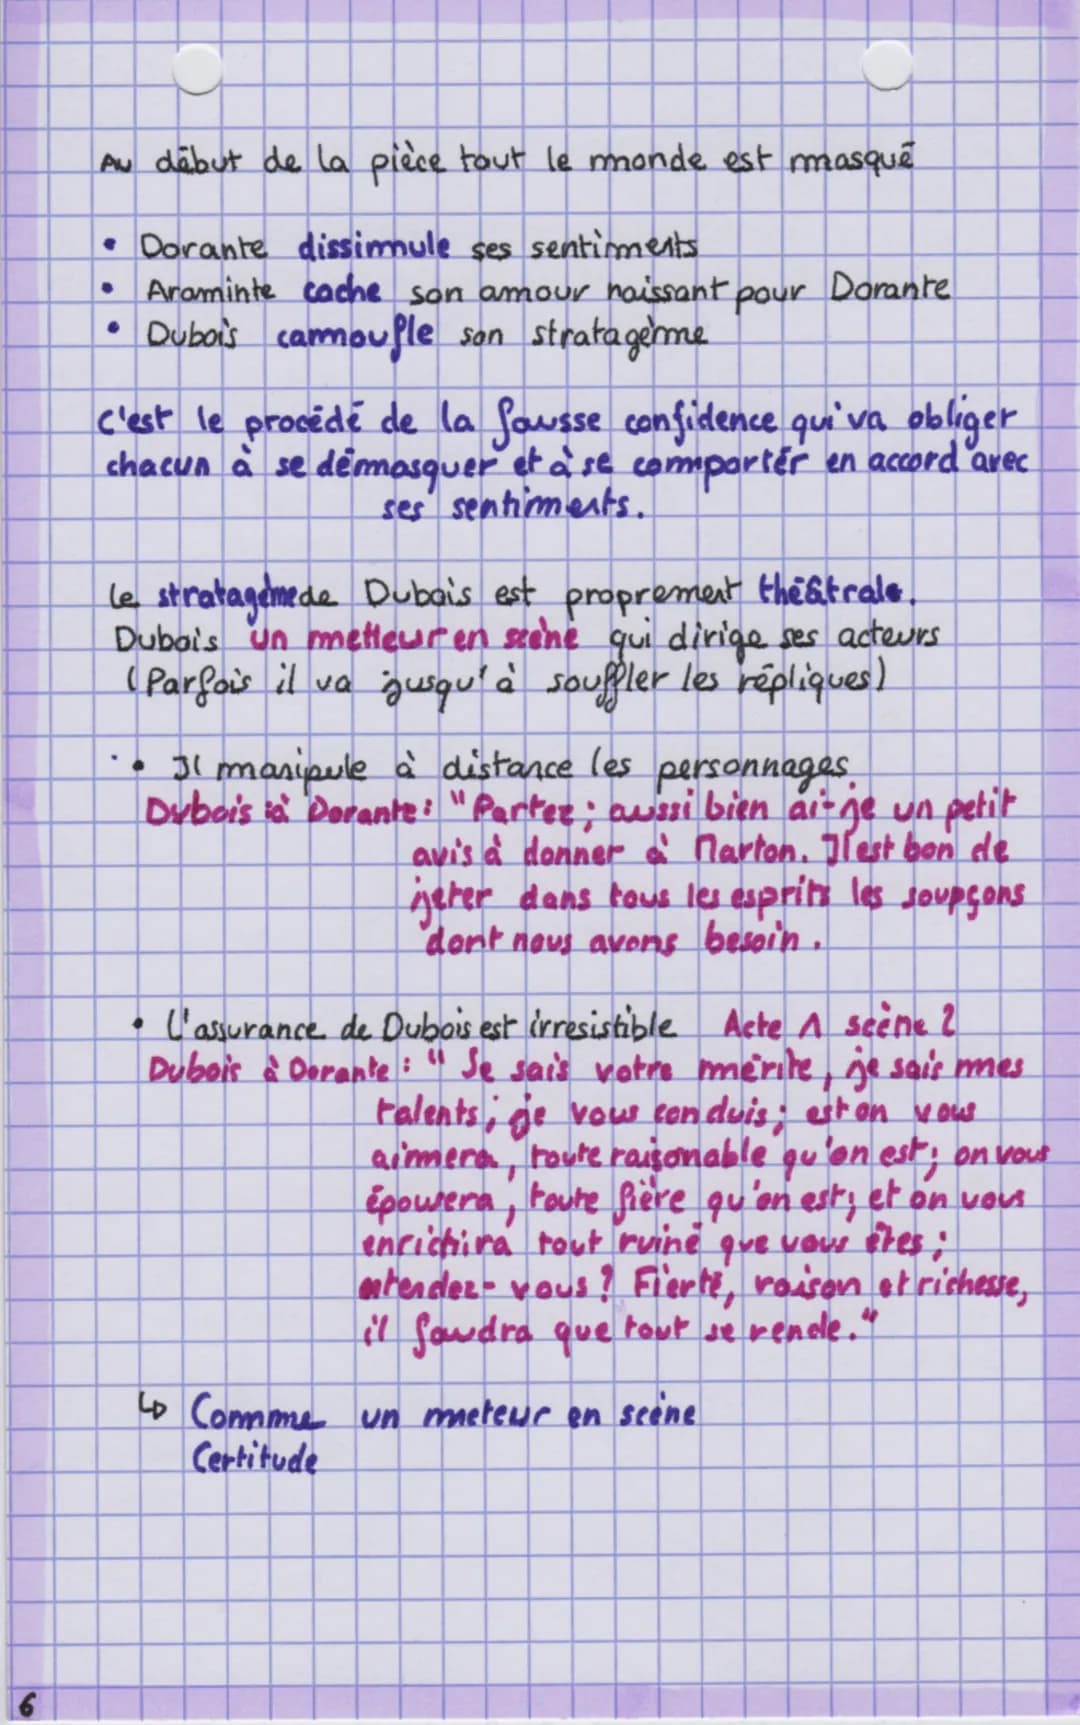 Au début de la pièce tout le monde est masqué
• Dorante dissimule ses sentiments
• Araminte cache son amour naissant pour Dorante
• Dubois camoufle son stratagème
C'est le procédé de la fausse confidence qui va obliger
chacun à se démasquer et à se comporter en accord avec
ses sentiments.
Le stratagème de Dubois est proprement théâtrale.
Dubois un metteur en scène qui dirige ses acteurs
(Parfois il va jusqu'à souffler les répliques)
• Il manipule à distance les personnages
Dubois à Dorante : "Partez ; aussi bien ai-je un petit
avis à donner à Marton. Il est bon de
jeter dans tous les esprits les soupçons
dont nous avons besoin.
• L'assurance de Dubois est irresistible Acte 1 scène 2
Dubois à Dorante : "Je sais votre mérite, je sais mes
talents ; je vous conduis ; est on vous
aimera, toute raisonable qu'on est ; on vous
épousera, toute fière qu'on est ; et on vous
enrichira tout ruiné que vous êtes ;
entendez-vous ? Fierté, raison et richesse,
il faudra que tout se rende."
↳ Comme un meteur en scène
Certitude
6